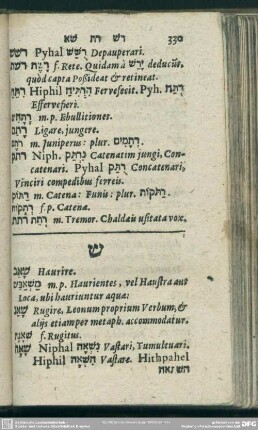 רש רת שא 330
רשש Pyhal רֻשַּׁשׁ Depauperari.
רֶשֶׁת f. Rete. Quidam à יָרַשׁ deducũt,
quòd capta Possideat & retineat.
רתח Hiphil הִרְתִּיחַ Fervefecit. Pyh. רֻתַּח
Effervefieri.
רְתָחִים m. p. Ebullitiones.
רָתַם Ligare, jungere.
רֹתֶם m. Juniperus: plur. רְתָמִים
רתק Niph. נִרְתַּק Catenatim jungi, Con-
catenari. Pyhal רֻתַּק Concatenari,
Vinciri compedibus ferreis.
רַתּוֹק m. Catena: Funis: plur. רַתּוֹקוֹת
רְתֻקוֹת f. p. Catenæ.
רתת רְתֵת m. Tremor. Chaldæis usitata vox.
ש
שָׁאַב Haurire.
מַשְׁאַבִּים m. p. Haurientes, vel Haustra aut
Loca, ubi hauriuntur aquæ:
שָׁאַג Rugire, Leonum proprium Verbum, &
alijs etiamper metaph. accommodatur.
שְׁאָגָה f. Rugitus.
שָׁאָה Niphal נִשְׁאָה Vastari, Tumultuari.
Hiphil הִשְׁאָה Vastare. Hithpahel